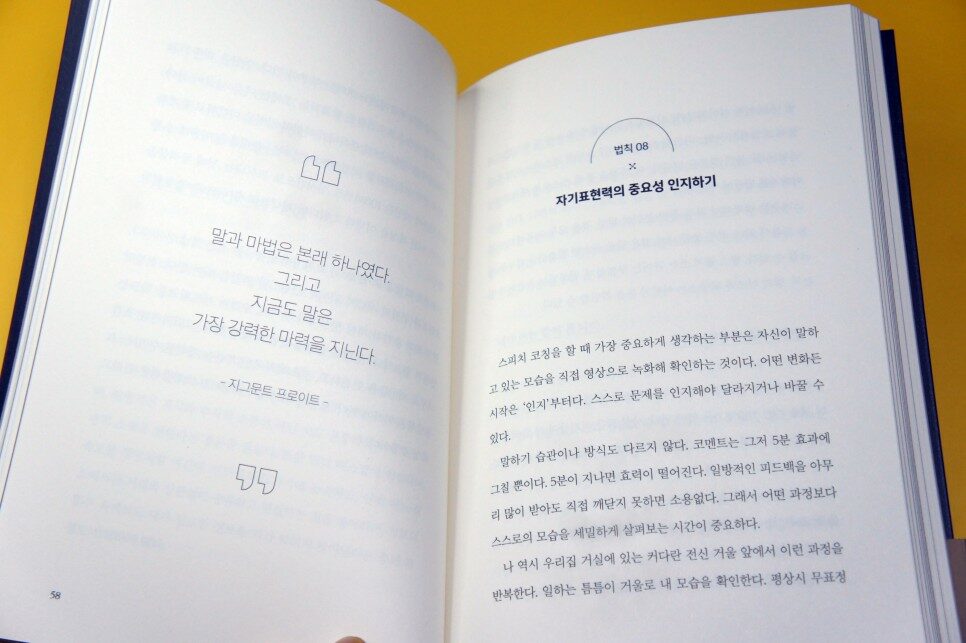 말과 마법은 본래 하나였다.
그리고
지금도 말은
가장 강력한 마력을 지닌다.
- 지그문트 프로이트 -
58
법칙 08
자기표현력의 중요성 인지하기
스피치 코칭을 할 때 가장 중요하게 생각하는 부분은 자신이 말하
고 있는 모습을 직접 영상으로 녹화해 확인하는 것이다. 어떤 변화든
시작은 ‘인지’부터다. 스스로 문제를 인지해야 달라지거나 바꿀 수
있다.
말하기 습관이나 방식도 다르지 않다. 코멘트는 그저 5분 효과에
그칠 뿐이다. 5분이 지나면 효력이 떨어진다. 일방적인 피드백을 아무
리 많이 받아도 직접 깨닫지 못하면 소용없다. 그래서 어떤 과정보다
스스로의 모습을 세밀하게 살펴보는 시간이 중요하다.
나 역시 우리집 거실에 있는 커다란 전신 거울 앞에서 이런 과정을
반복한다. 일하는 틈틈이 거울로 내 모습을 확인한다. 평상시 무표정